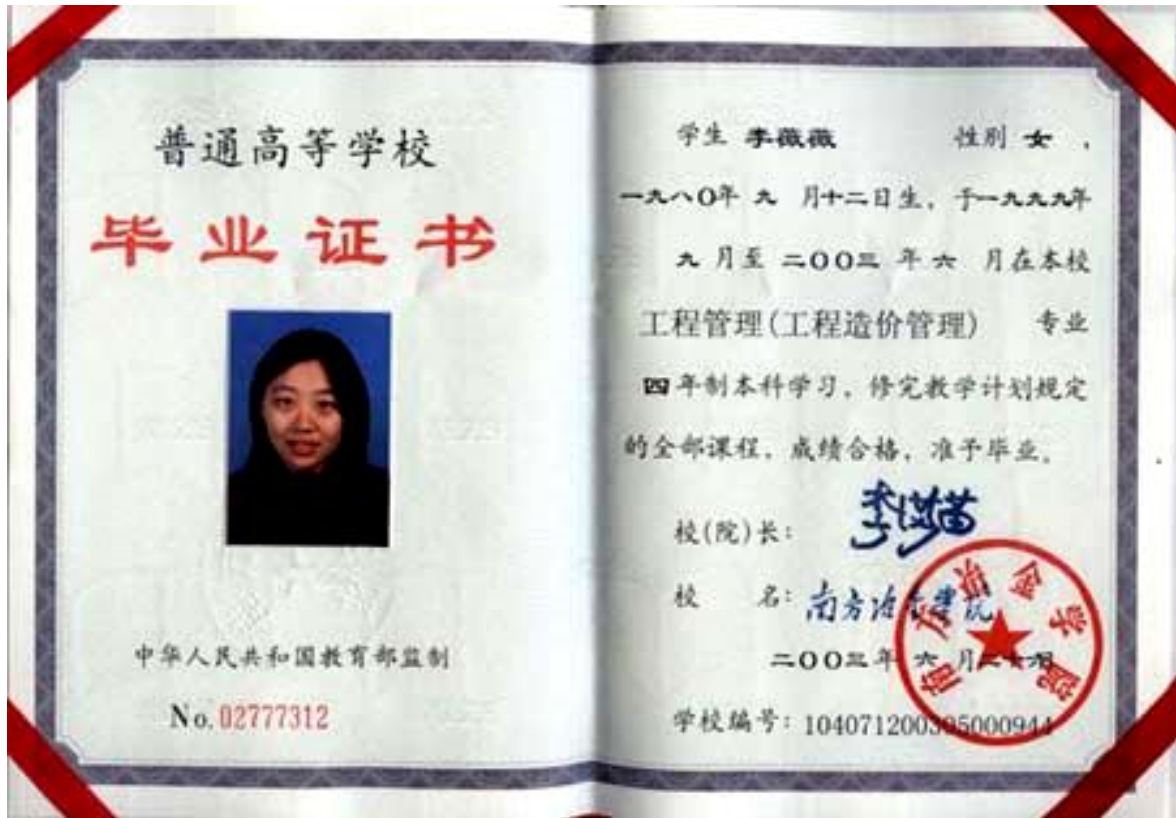 普通高等学校
毕业证书
中华人民共和国教育部监制
No.02777312
学生 李薇薇 性别 女,
一九八〇年 九 月十二日生, 于一九九九年
九 月至 二〇〇三 年 六 月在本校
工程管理(工程造价管理) 专业
四年制本科学习, 修完教学计划规定
的全部课程, 成绩合格, 准予毕业。
校(院)长:
校 名: 南方冶金学院
二〇〇三年 六 月
学校编号: 104071200305000944
南方冶金学院